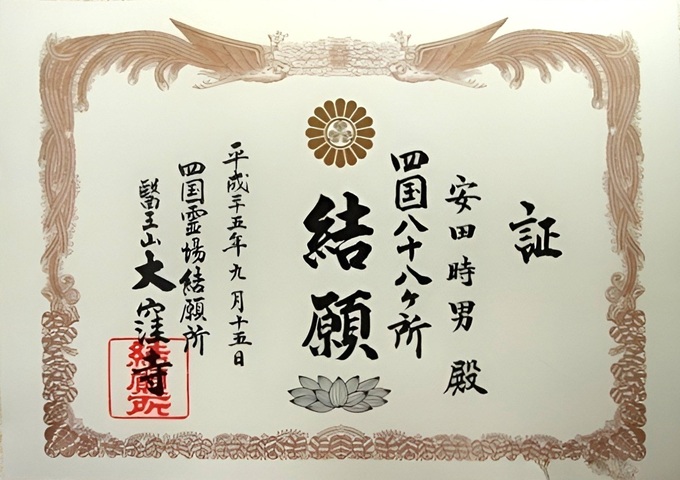 証
安田時男 殿
四国八十八ヶ所
結願
平成二十五年九月十五日
四国霊場結願所
醫王山大窪寺
結願所